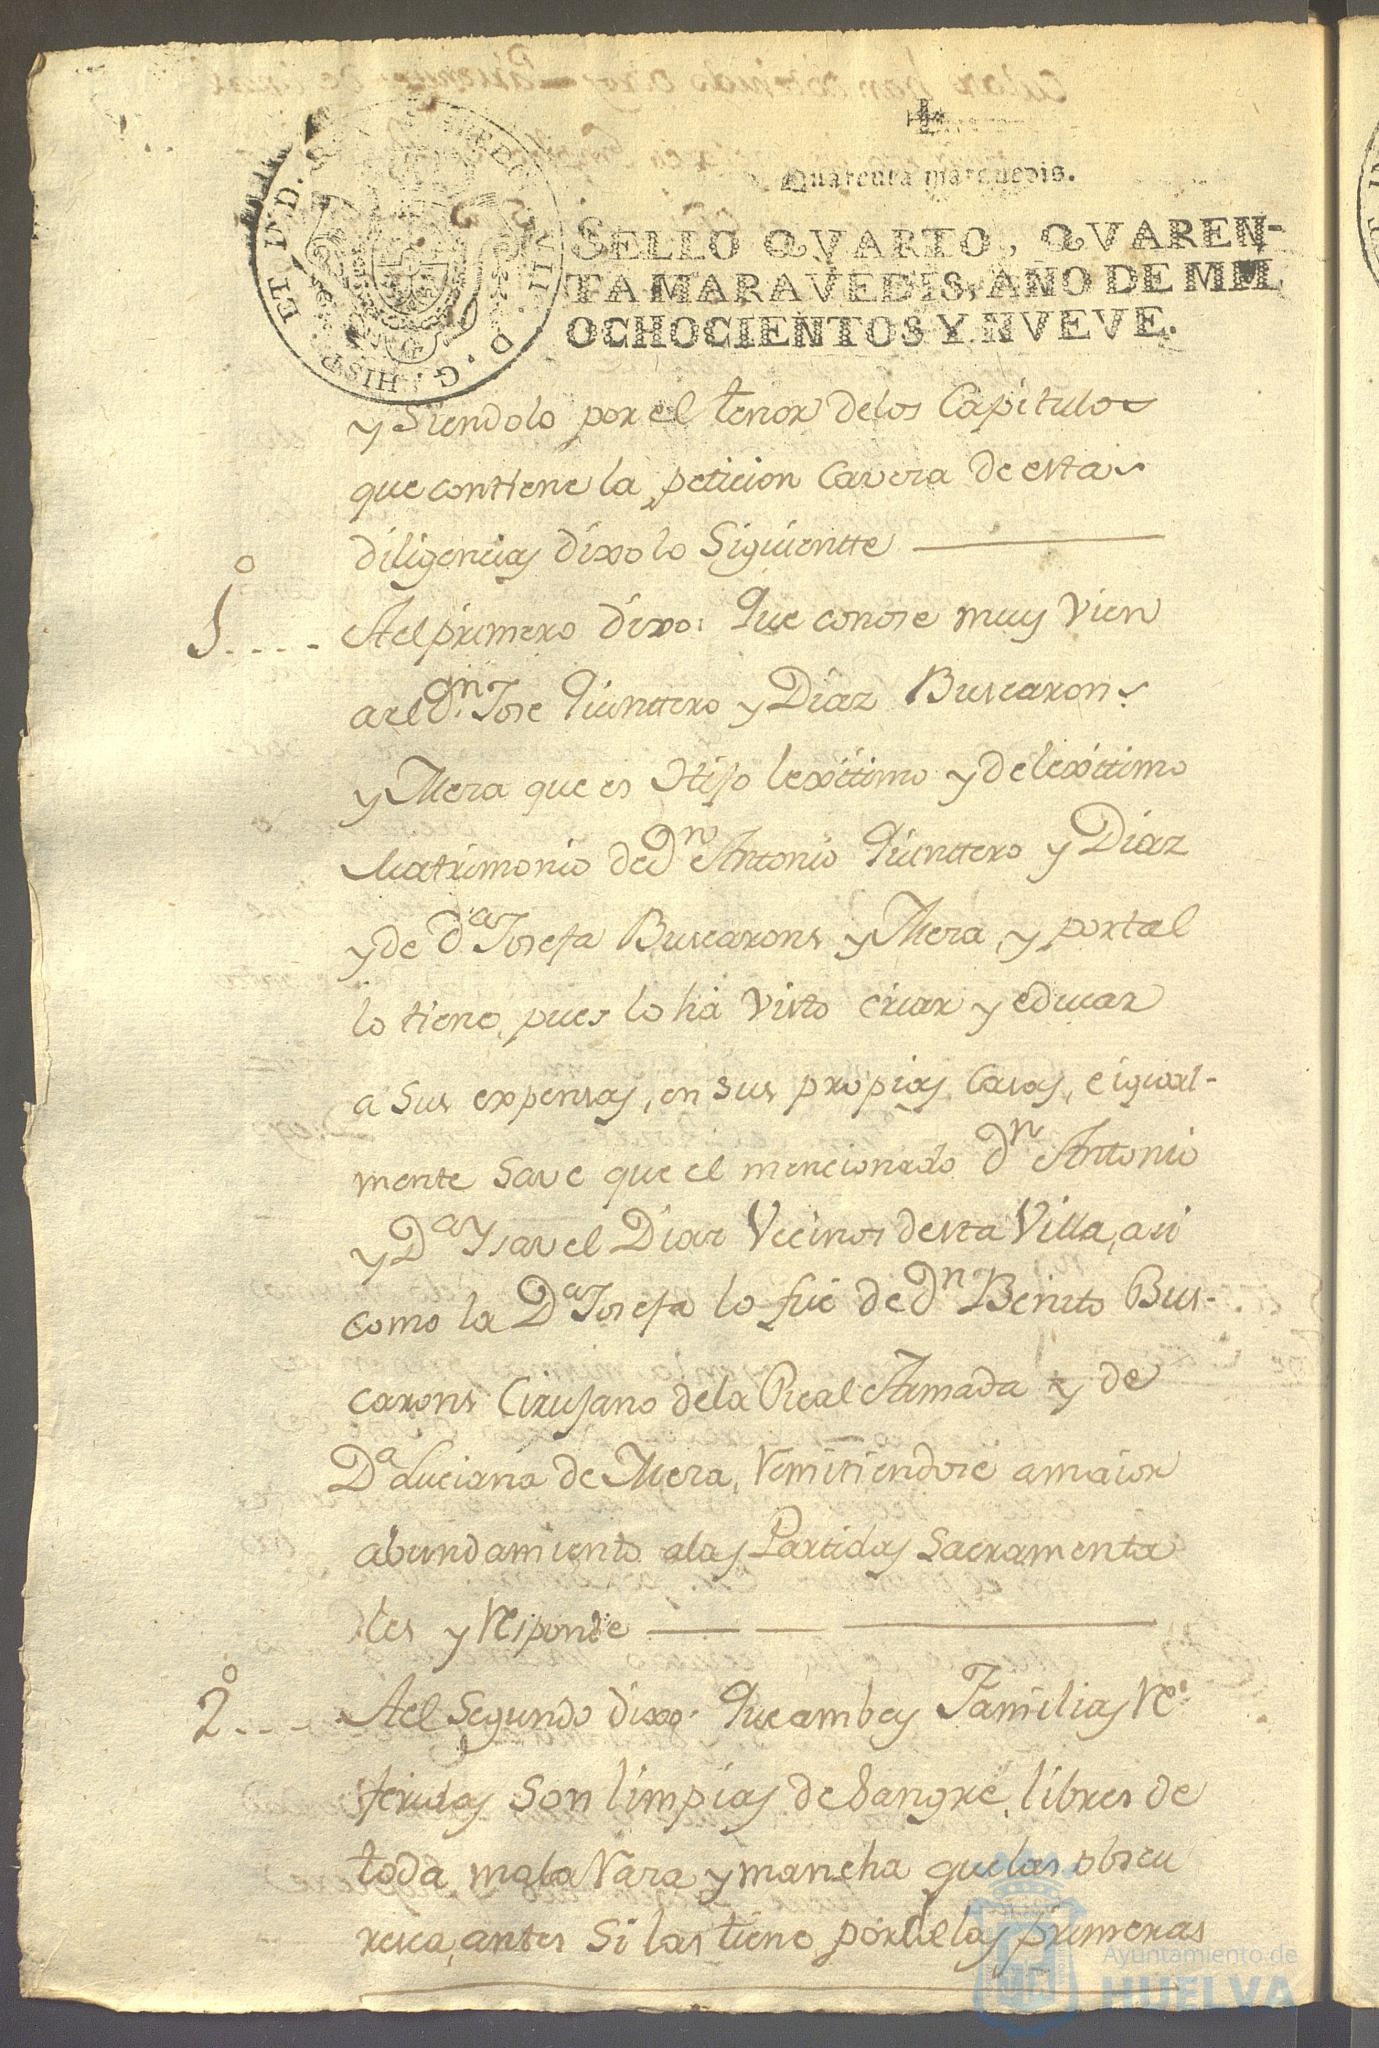 Quarenta maravedis.
SELLO QVARTO, QVAREN-
TA MARAVEDIS, AÑO DE MIL
OCHOCIENTOS Y NVEVE.
y Siendolo por el tenor delos Capitulos
que contiene la peticion Cavera de estas
diligencias dixo lo Siguientte
1º.... Ael primero dixo: Que conose muy vien
a el Dn. Jose Quinttero y Diaz Buscarons
y Mera que es Hijo lexittimo y de lexittimo
Matrimonio de Dn Antonio Quinttero y Diaz
y de Da Josefa Buscarons y Mera, y por tal
lo tiene, pues lo ha visto criar y educar
a sus expensas, en sus propias Casas, e igual-
mente save que el mencionado Dn Antonio
y Da Ysavel Diaz Vecinos desta Villa, asi
como la Da Josefa lo fue de Dn Benito Bus-
carons Cirujano dela Real Armada y de
Da Luciana de Mera, remitiendose a maior
abundamiento alas Partidas Sacramenta
les y responde
2º.... Ael Segundo dixo: Que ambas Familias re
feridas son limpias de sangre, libres de
toda mala rara y mancha que las obscu
resca, antes si las tiene por de las primeras
ET IND. D. G. HISP
Ayuntamiento de
HUELVA